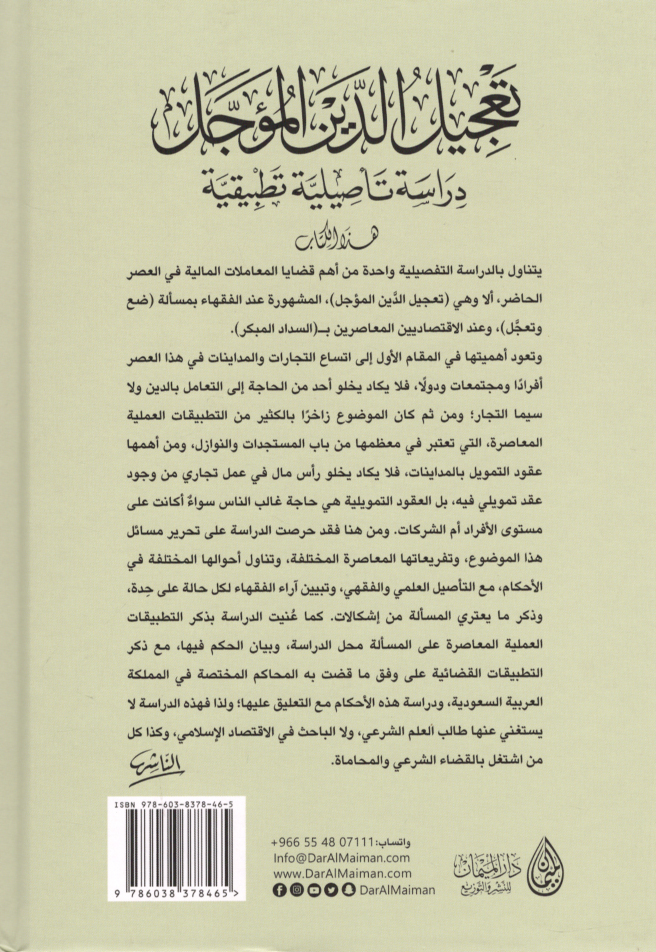 تَعْجِيلُ الدَّيْنِ المُؤَجَّلِ
دِرَاسَة تَأصِيلِيَّة تَطْبِيقِيَّة
هٰذَا الكِتَاب
يتناول بالدراسة التفصيلية واحدة من أهم قضايا المعاملات المالية في العصر
الحاضر، ألا وهي (تعجيل الدَّين المؤجل)، المشهورة عند الفقهاء بمسألة (ضع
وتعجَّل)، وعند الاقتصاديين المعاصرين بــ(السداد المبكر).
وتعود أهميتها في المقام الأول إلى اتساع التجارات والمداينات في هذا العصر
أفرادًا ومجتمعات ودولًا، فلا يكاد يخلو أحد من الحاجة إلى التعامل بالدين ولا
سيما التجار؛ ومن ثم كان الموضوع زاخرًا بالكثير من التطبيقات العملية
المعاصرة، التي تعتبر في معظمها من باب المستجدات والنوازل، ومن أهمها
عقود التمويل بالمداينات، فلا يكاد يخلو رأس مال في عمل تجاري من وجود
عقد تمويلي فيه، بل العقود التمويلية هي حاجة غالب الناس سواءٌ أكانت على
مستوى الأفراد أم الشركات. ومن هنا فقد حرصت الدراسة على تحرير مسائل
هذا الموضوع، وتفريعاتها المعاصرة المختلفة، وتناول أحوالها المختلفة في
الأحكام، مع التأصيل العلمي والفقهي، وتبيين آراء الفقهاء لكل حالة على حِدة،
وذكر ما يعتري المسألة من إشكالات. كما عُنيت الدراسة بذكر التطبيقات
العملية المعاصرة على المسألة محل الدراسة، وبيان الحكم فيها، مع ذكر
التطبيقات القضائية على وفق ما قضت به المحاكم المختصة في المملكة
العربية السعودية، ودراسة هذه الأحكام مع التعليق عليها؛ ولذا فهذه الدراسة لا
يستغني عنها طالب العلم الشرعي، ولا الباحث في الاقتصاد الإسلامي، وكذا كل
من اشتغل بالقضاء الشرعي والمحاماة.
الناشر
ISBN 978-603-8378-46-5
9 786038 378465 >
واتساب: +966 55 48 07111
Info@DarAlMaiman.com
www.DarAlMaiman.com
DarAlMaiman
دار الميمان
للنشر والتوزيع
الميمان